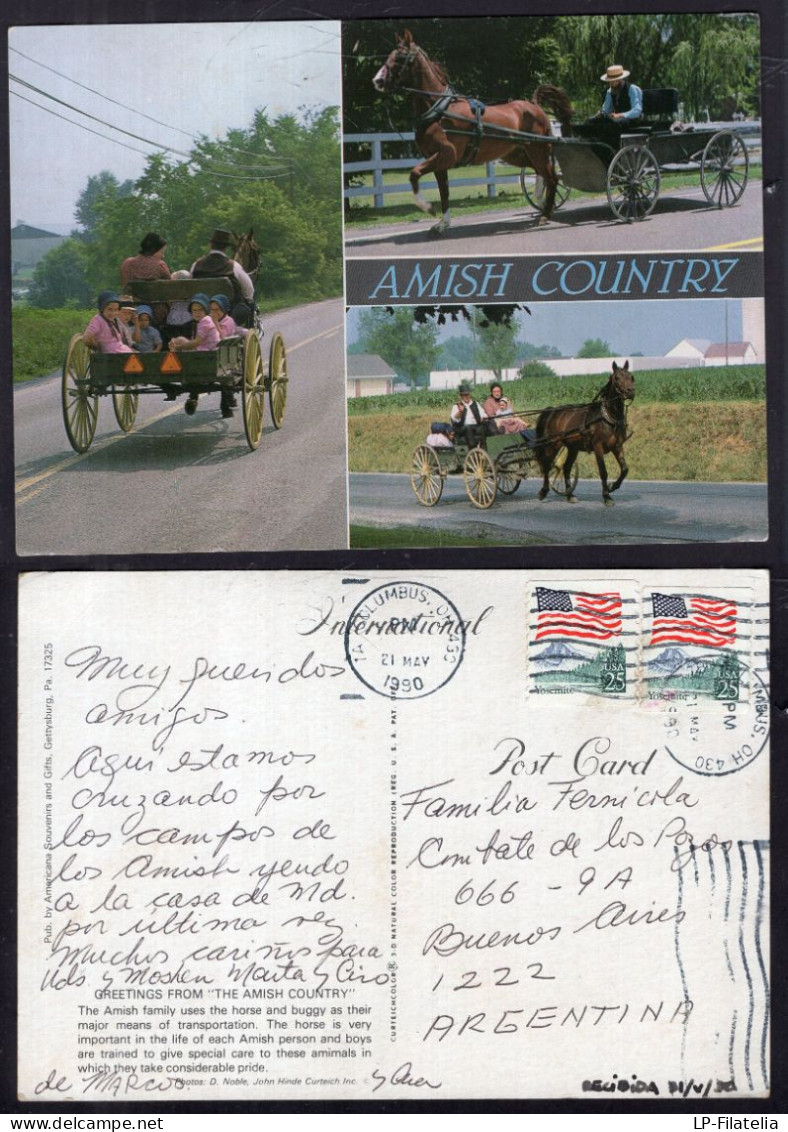 AMISH COUNTRY
International
COLUMBUS, OH 430
PM
21 MAY
1990
USA
25
Yosemite
USA
25
Yosemite
PM
OH 430
Post Card
Muy queridos
amigos.
Aqui estamos
cruzando por
los campos de
los Amish yendo
a la casa de Md.
por última vez.
Muchos cariños para
Uds. y Moshen Marta y Ciro
de MARCOS
Familia Fernícola
Combate de los Pozos
666 - 9A
Buenos Aires
1222
ARGENTINA
GREETINGS FROM "THE AMISH COUNTRY"
The Amish family uses the horse and buggy as their
major means of transportation. The horse is very
important in the life of each Amish person and boys
are trained to give special care to these amimals in
which they take considerable pride.
Photos: D. Noble, John Hinde Curteich Inc.
Pub. by Americana Souvenirs and Gifts, Gettysburg, Pa. 17325
CURTEICHCOLOR® 3-D NATURAL COLOR REPRODUCTION (REG. U.S.A. PAT. OFF.)
RECIBIDA 31/V/90
LP-Filatelia